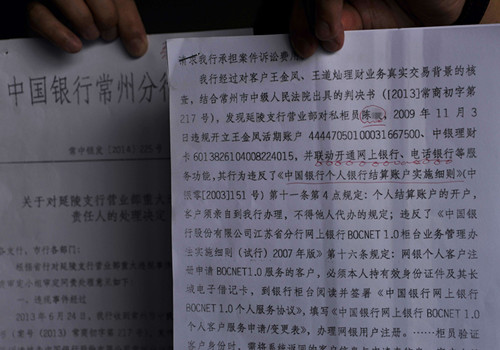 中国银行常州分行
常中银发【2014】225号
关于对延陵支行营业部重大
责任人的处理决定
各支行、市行各部门：
一、违规事件经过
请求我行承担案件诉讼费。
我行经过对客户王金凤、王道灿理财业务真实交易背景的核
查，结合常州市中级人民法院出具的判决书（[2013]常商初字第
217号），发现延陵支行营业部对私柜员陈 ，2009年11月3
日违规开立王金凤活期账户 44447050100031667500、中银理财
卡 6013826104008224015，并联动开通网上银行、电话银行等服
务功能，其行为违反了《中国银行个人银行结算账户实施细则》（中
银零[2003]151号）第十一条第4点规定：个人结算账户的开户，
客户须亲自到我行办理，不得他人代办的规定；违反了《中国银
行股份有限公司江苏省分行网上银行BOCNET1.0柜台业务管理办
法实施细则（试行）2007年版》第十六条规定：网银个人客户注
册申请BOCNET1.0服务的客户，必须本人持有效身份证件及其长
城电子借记卡，到银行柜台阅读并签署《中国银行网上银行
BOCNET1.0个人服务协议》，填写《中国银行网上银行BOCNET1.0
个人客户服务申请/变更表》，办理网银用户注册。……柜员验证